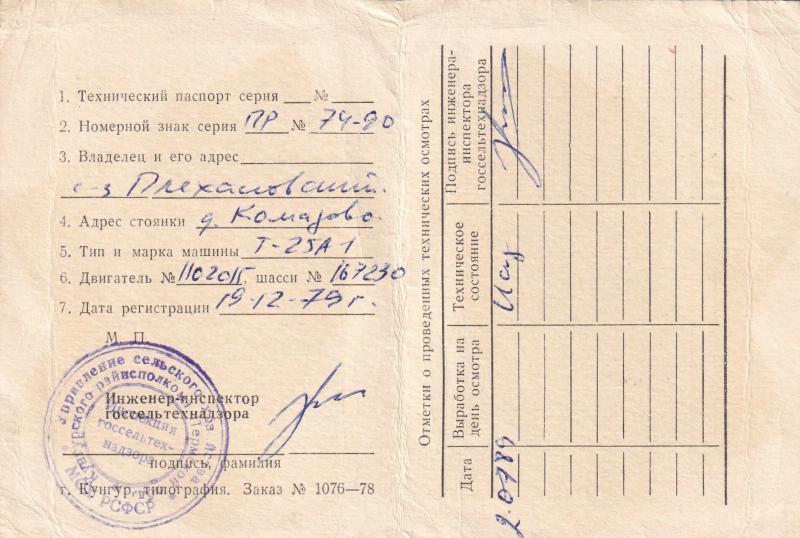 1. Технический паспорт серия ___ № ___
2. Номерной знак серия ПР № 74-90
3. Владелец и его адрес
с-з Плехановский
4. Адрес стоянки д. Комарово
5. Тип и марка машины Т-25А1
6. Двигатель № 110201Г, шасси № 167230
7. Дата регистрации 19-12-79 г.
М. П.
Инженер-инспектор
госсельтехнадзора
подпись, фамилия
г. Кунгур, типография. Заказ № 1076—78
Управление сельского хоз
Кунгурского райисполкома Пермской
РСФСР
Инспекция
госсельтех-
надзора
Отметки о проведенных технических осмотрах
Дата
Выработка на
день осмотра
Техническое
состояние
Подпись инженера-
инспектора
госсельтехнадзора